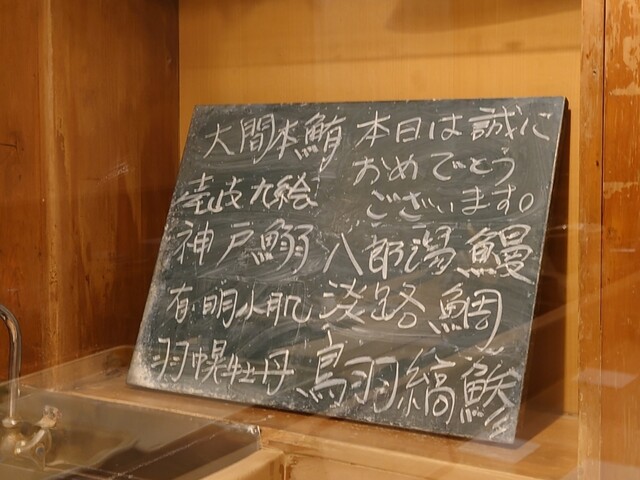 大間本鮪
壱岐九絵
神戸鰯
有明小肌
羽幌牡丹
本日は誠に
おめでとう
ございます。
八郎潟鰻
淡路鯛
鳥羽縞鯵